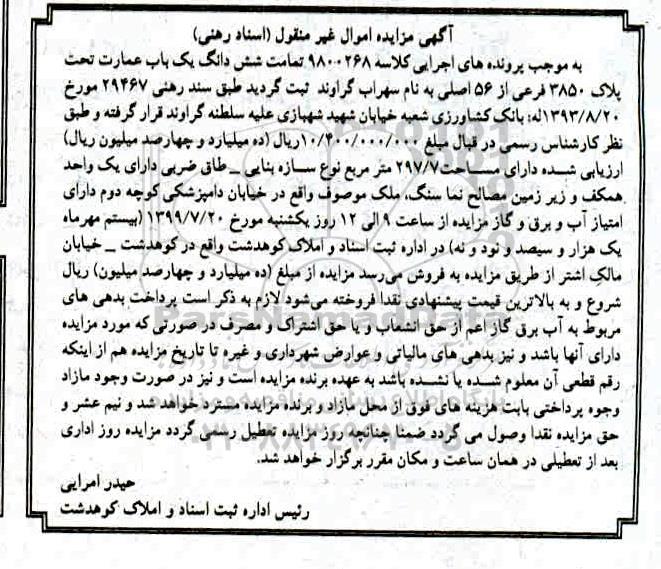 آگهی مزایده اموال غیر منقول (اسناد رهنی)
به موجب پرونده های اجرایی کلاسه ۹۸۰۰۲۶۸ تمامت شش دانگ یک باب عمارت تحت
پلاک ۳۸۵۰ فرعی از ۵۶ اصلی به نام سهراب گراوند ثبت گردید طبق سند رهنی ۲۹۴۶۷ مورخ
۱۳۹۳/۸/۲۰له: بانک کشاورزی شعبه خیابان شهید شهبازی علیه سلطنه گراوند قرار گرفته و طبق
نظر کارشناس رسمی در قبال مبلغ ۱۰/۴۰۰/۰۰۰/۰۰۰ریال (ده میلیارد و چهارصد میلیون ریال)
ارزیابی شده دارای مساحت۲۹۷/۷ متر مربع نوع سازه بنایی _ طاق ضربی دارای یک واحد
همکف و زیر زمین مصالح نما سنگ، ملک موصوف واقع در خیابان دامپزشکی کوچه دوم دارای
امتیاز آب و برق و گاز مزایده از ساعت ۹ الی ۱۲ روز یکشنبه مورخ ۱۳۹۹/۷/۲۰ (بیستم مهرماه
یک هزار و سیصد و نود و نه) در اداره ثبت اسناد و املاک کوهدشت واقع در کوهدشت _ خیابان
مالک اشتر از طریق مزایده به فروش می‌رسد مزایده از مبلغ (ده میلیارد و چهارصد میلیون) ریال
شروع و به بالاترین قیمت پیشنهادی نقدا فروخته می‌شود لازم به ذکر است پرداخت بدهی های
مربوط به آب برق گاز اعم از حق انشعاب و یا حق اشتراک و مصرف در صورتی که مورد مزایده
دارای آنها باشد و نیز بدهی های مالیاتی و عوارض شهرداری و غیره تا تاریخ مزایده هم از اینکه
رقم قطعی آن معلوم شده یا نشده باشد به عهده برنده مزایده است و نیز در صورت وجود مازاد
وجوه پرداختی بابت هزینه های فوق از محل مازاد و برنده مزایده مسترد خواهد شد و نیم عشر و
حق مزایده نقدا وصول می گردد ضمنا چنانچه روز مزایده تعطیل رسمی گردد مزایده روز اداری
بعد از تعطیلی در همان ساعت و مکان مقرر برگزار خواهد شد.
حیدر امرایی
رئیس اداره ثبت اسناد و املاک کوهدشت
ParsNamadData